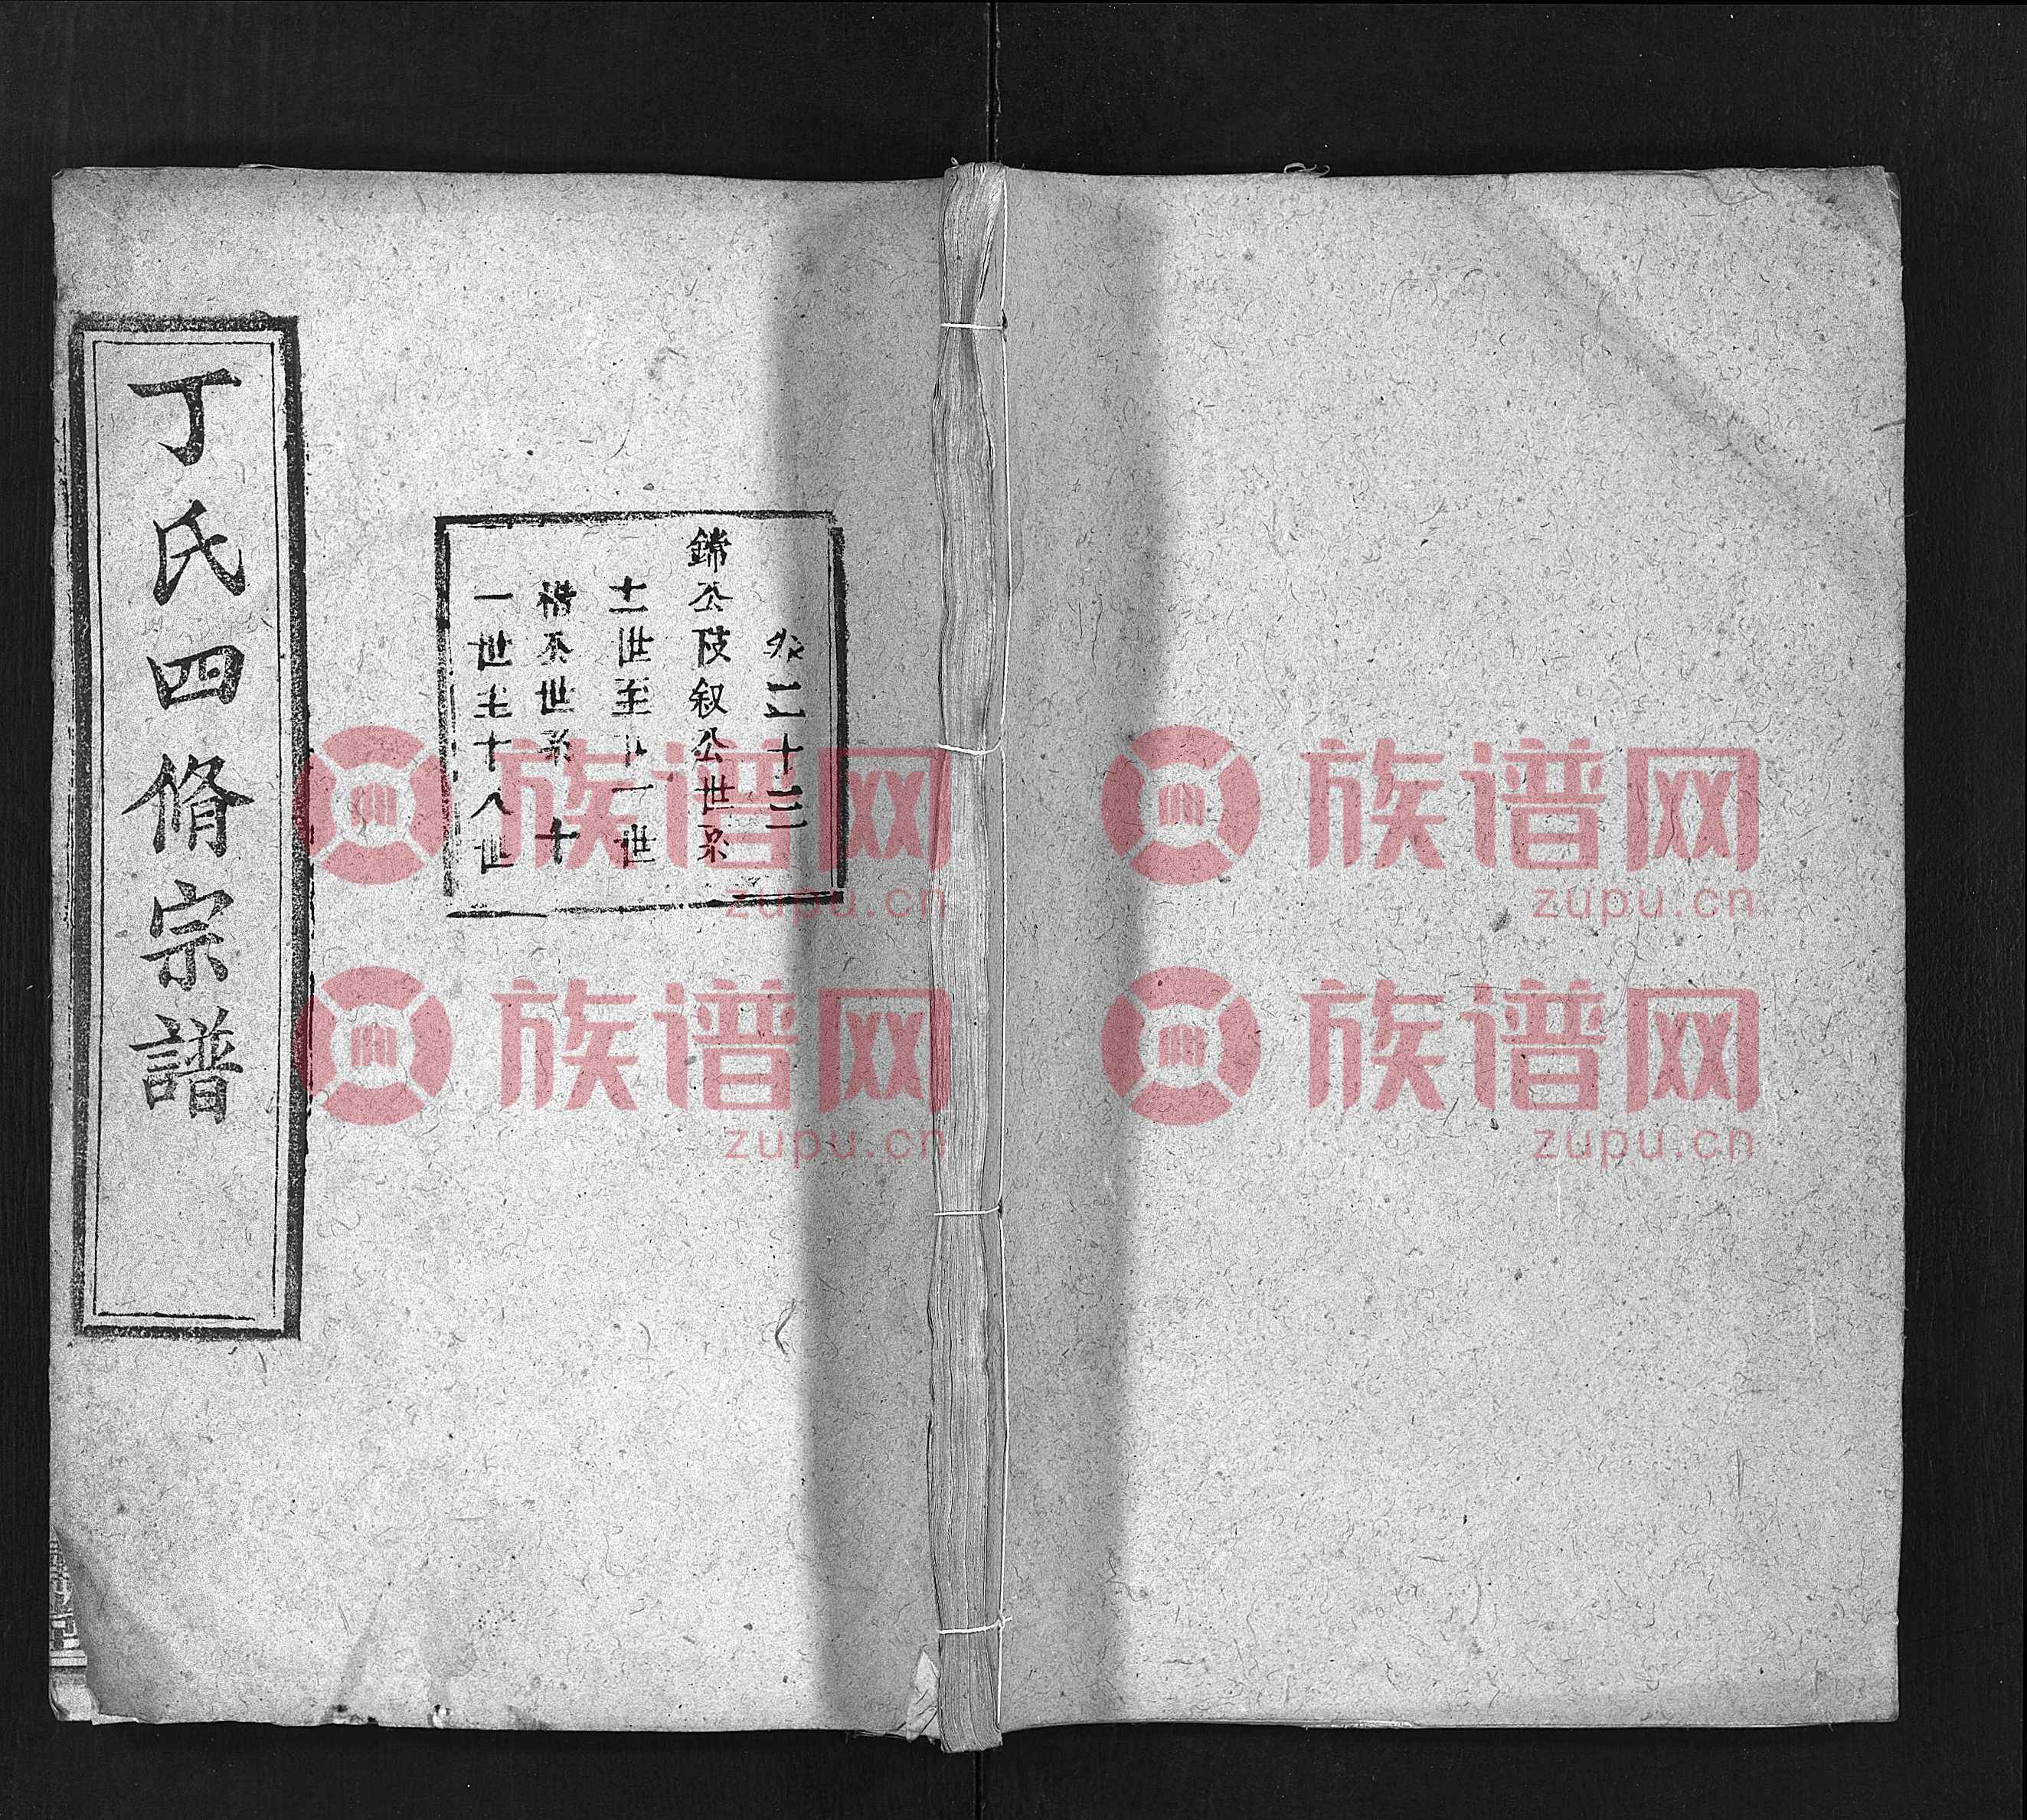 丁氏四脩宗譜
卷二十三
公世系
十一世至十一世
世系 十
一世至十八世
族谱网
zupu.cn
族谱网
zupu.cn
族谱网
zupu.cn
族谱网
zupu.cn